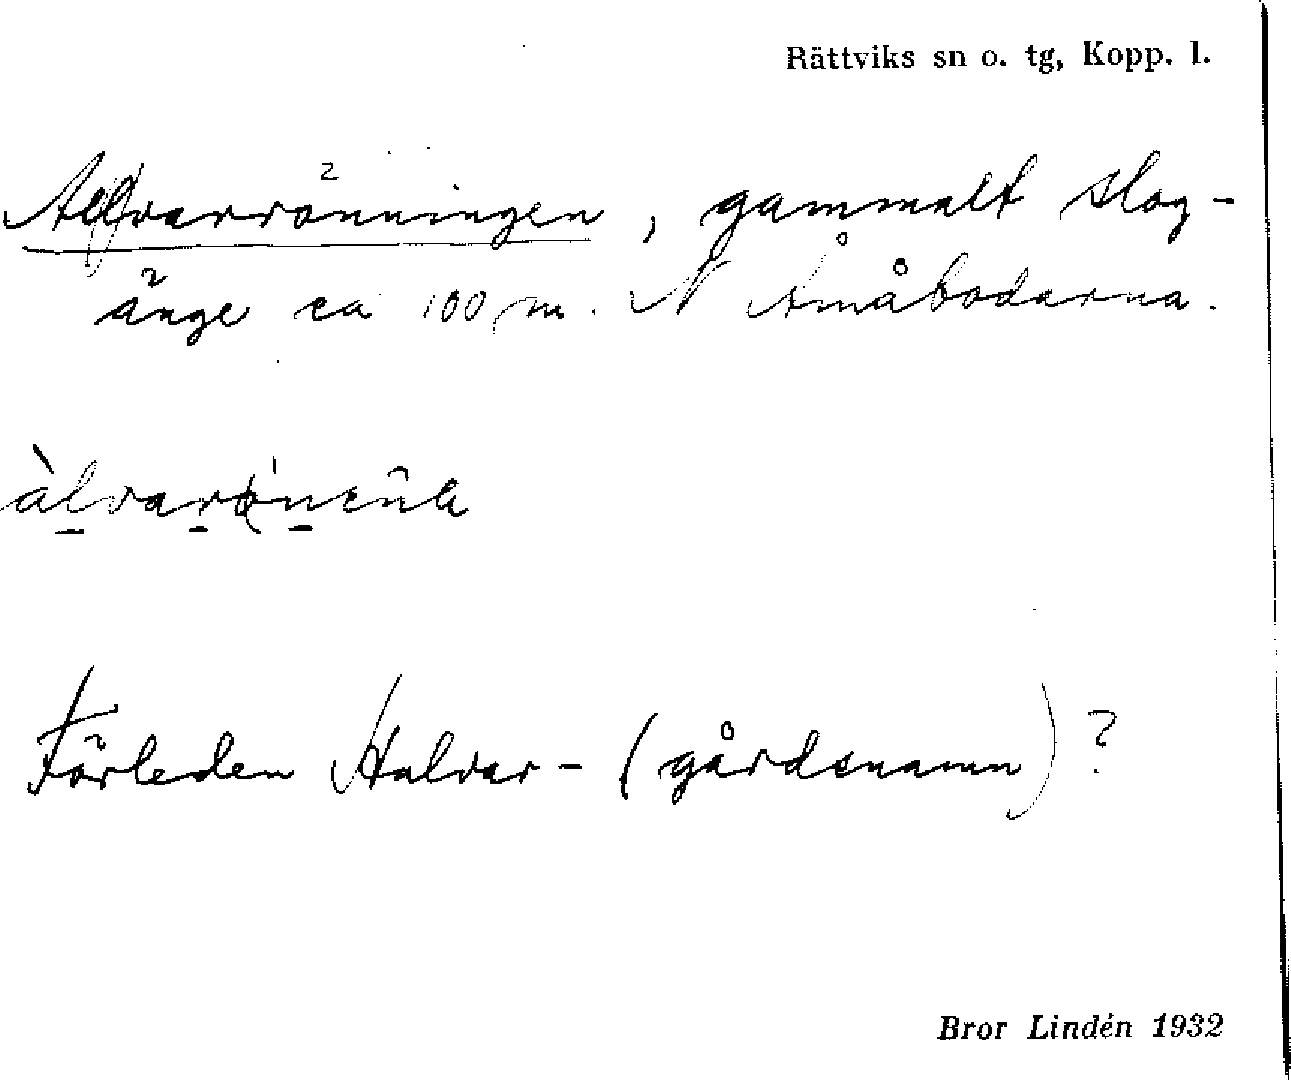 Rättviks sn o. tg, Kopp. l.
Alvarrönningen, gammalt slog-
änge ca 100 m. N Åmåbodarna.
Förleden Halvar- (gårdsnamn)?
Bror Lindén 1932